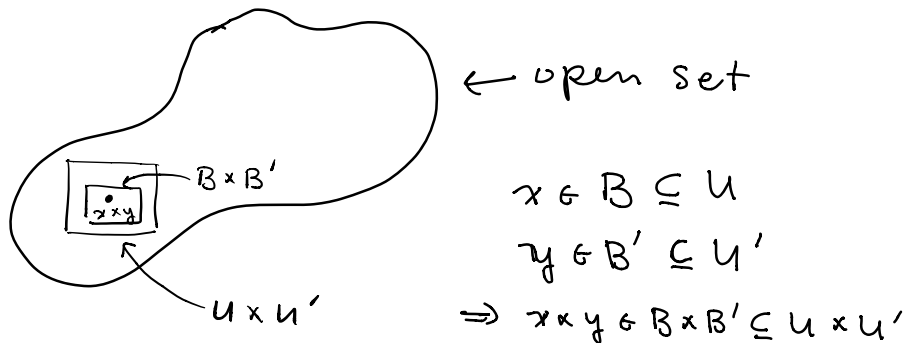 ← open set
B × B'
x × y
x ∈ B ⊆ U
y ∈ B' ⊆ U'
U × U'
⇒ x × y ∈ B × B' ⊆ U × U'